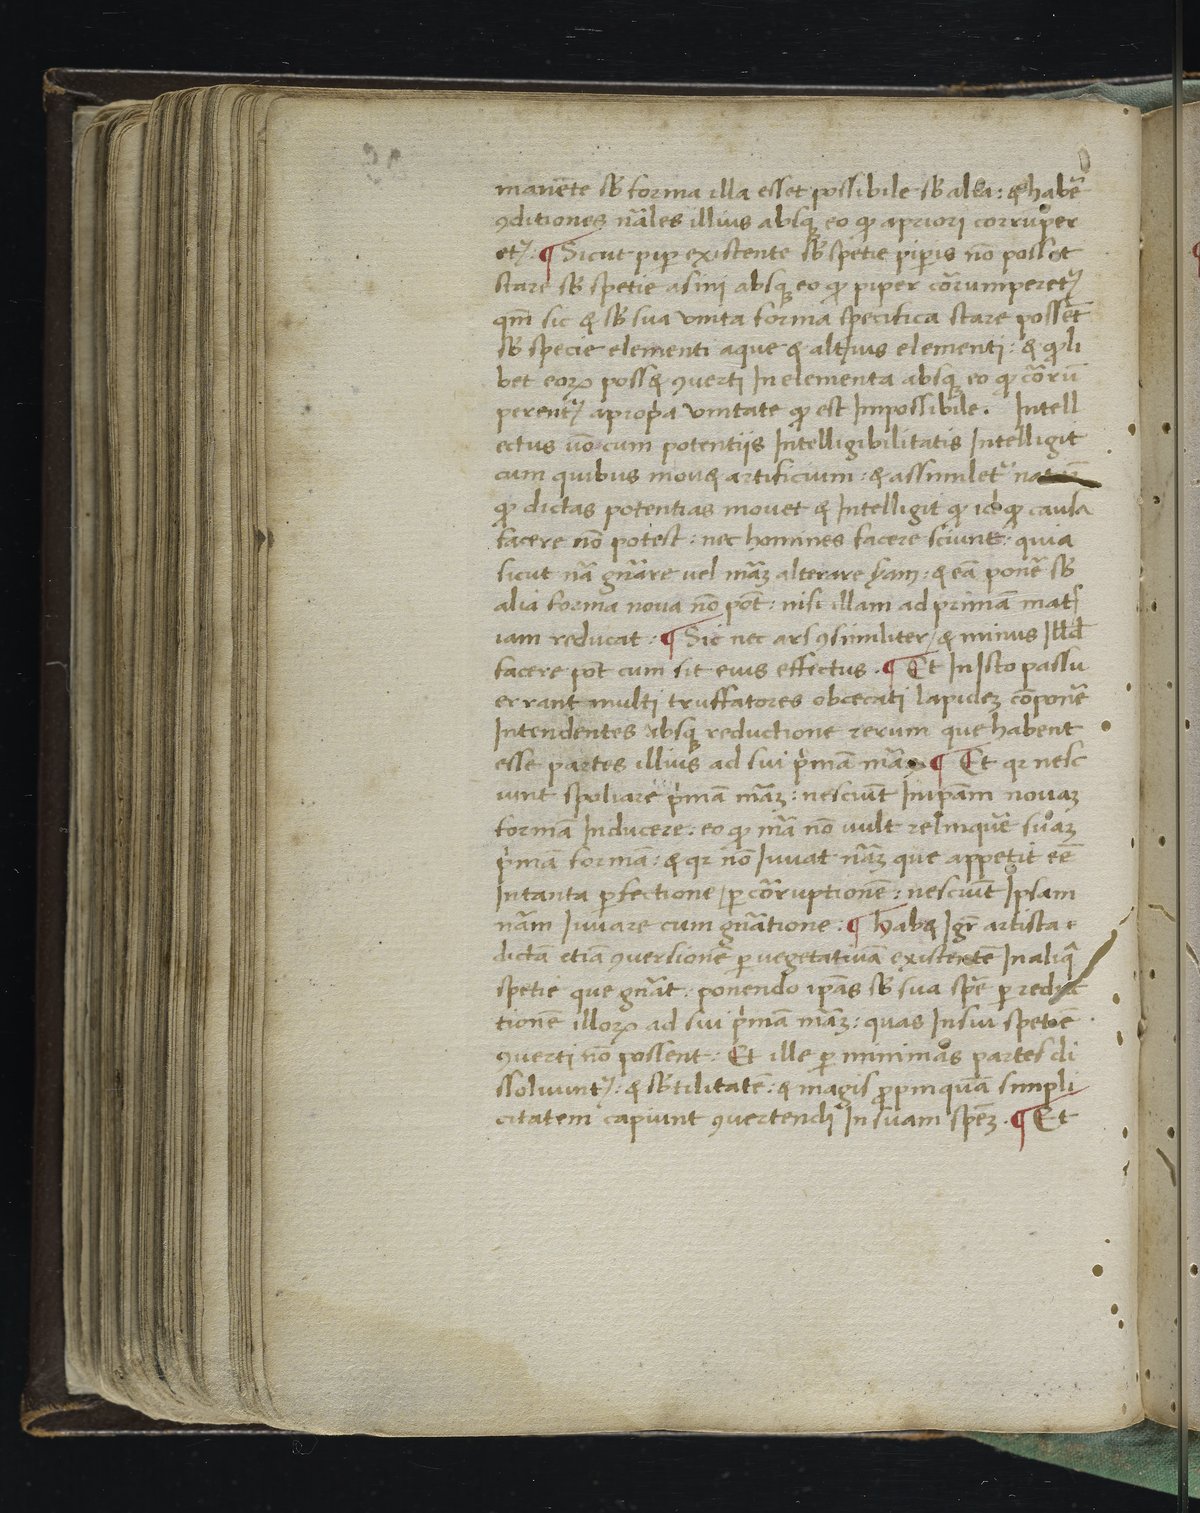 manēte sƀ forma illa esset possibile sƀ alia: & habẽ
ꝯditiones nãles illius absqꝫ eo ꝙ apriori corrup̃er
etꝰ. ¶ Sicut pip̱ existente sƀ spetie pip̱is nõ posset
stare sƀ spetie asini absqꝫ eo ꝙ piper cõrumperetꝰ
qm̃ sic & sƀ sua vnita forma specifica stare possẽt
sƀ specie elementi aque & altꝰius elementi: & ꝙli
bet eoꝝ poss& ꝯuerti In elementa absqꝫ eo ꝙ cõrũ
perentꝰ apropͥa vnitate ꝙ est Impossibile. Intell
ectus uõ cum potentijs Intelligibilitatis Intelligit
cum quibus mou& artificium: & assimiletꝰ
ꝙ dictas potentias mouet & Intelligit ꝙ id ꝙ causa
facere nõ potest: nec homines facere sciunt: quia
sicut nã gñare uel mãꝫ alterare: & eã ponẽ sƀ
alia forma noua nõ põt: nisi illam ad primã mat̃
iam reducat: ¶ Sic nec ars ꝯsimiliter / & minus Illđ
facere põt cum sit eius effectus. ¶ Et In Isto passu
errant multi truffatores obcecati lapideꝫ cõponẽ
Intendentes absqꝫ reductione rerum que habent
esse partes illius ad sui pͥmã mãꝫ ¶ Et qꝛ nesc
iunt spoliare pͥmã mãꝫ: nesciũt Inip̃am nouaꝫ
formã Inducere: eo ꝙ mã nõ uult relinquẽ suaꝫ
pͥmã formã: & qꝛ nõ Iuuat nãꝫ que appetit eẽ
Intanta ꝑfectione / ꝑ cõruptionẽ: nesciũt Ipsam
nãm Iuuare cum gñatione: ¶ Hab& Igr̃ artista
dictã etiã ꝯuersionẽ ꝑ uegetatiuã existentẽ In aliq̃
spetie que gñat: ponendo ip̃as sƀ sua spẽ ꝑ reduc
tionẽ illoꝝ ad sui pͥmã mãꝫ: quas Insui spetiẽ
ꝯuerti nõ possent: Et ille ꝑ minimas partes di
ssoluuntꝰ: & sƀtilitatẽ: & magis ꝓpinquã simpli
citatem capiunt ꝯuertendi In suam spẽꝫ. ¶ Et